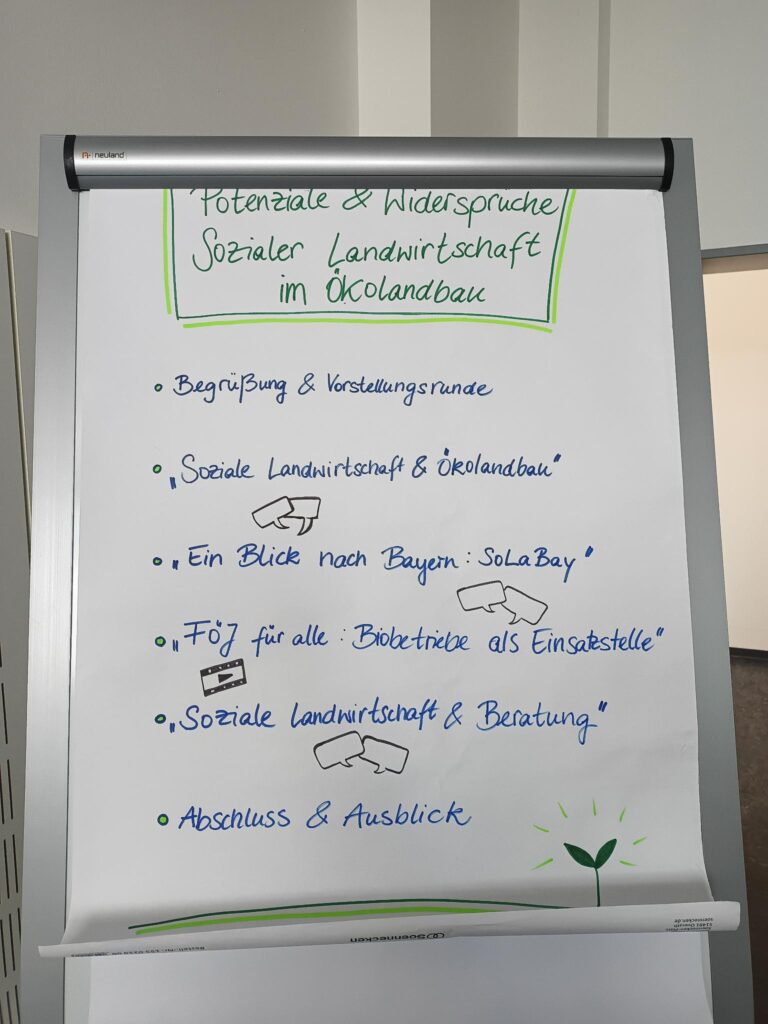 neuland
Potenziale & Widersprüche
Sozialer Landwirtschaft
im Ökolandbau
• Begrüßung & Vorstellungsrunde
• „Soziale Landwirtschaft & Ökolandbau"
• „Ein Blick nach Bayern: SoLaBay"
• „FÖJ für alle: Biobetriebe als Einsatzstelle"
• „Soziale Landwirtschaft & Beratung"
• Abschluss & Ausblick
Soennecken
soennecken.de